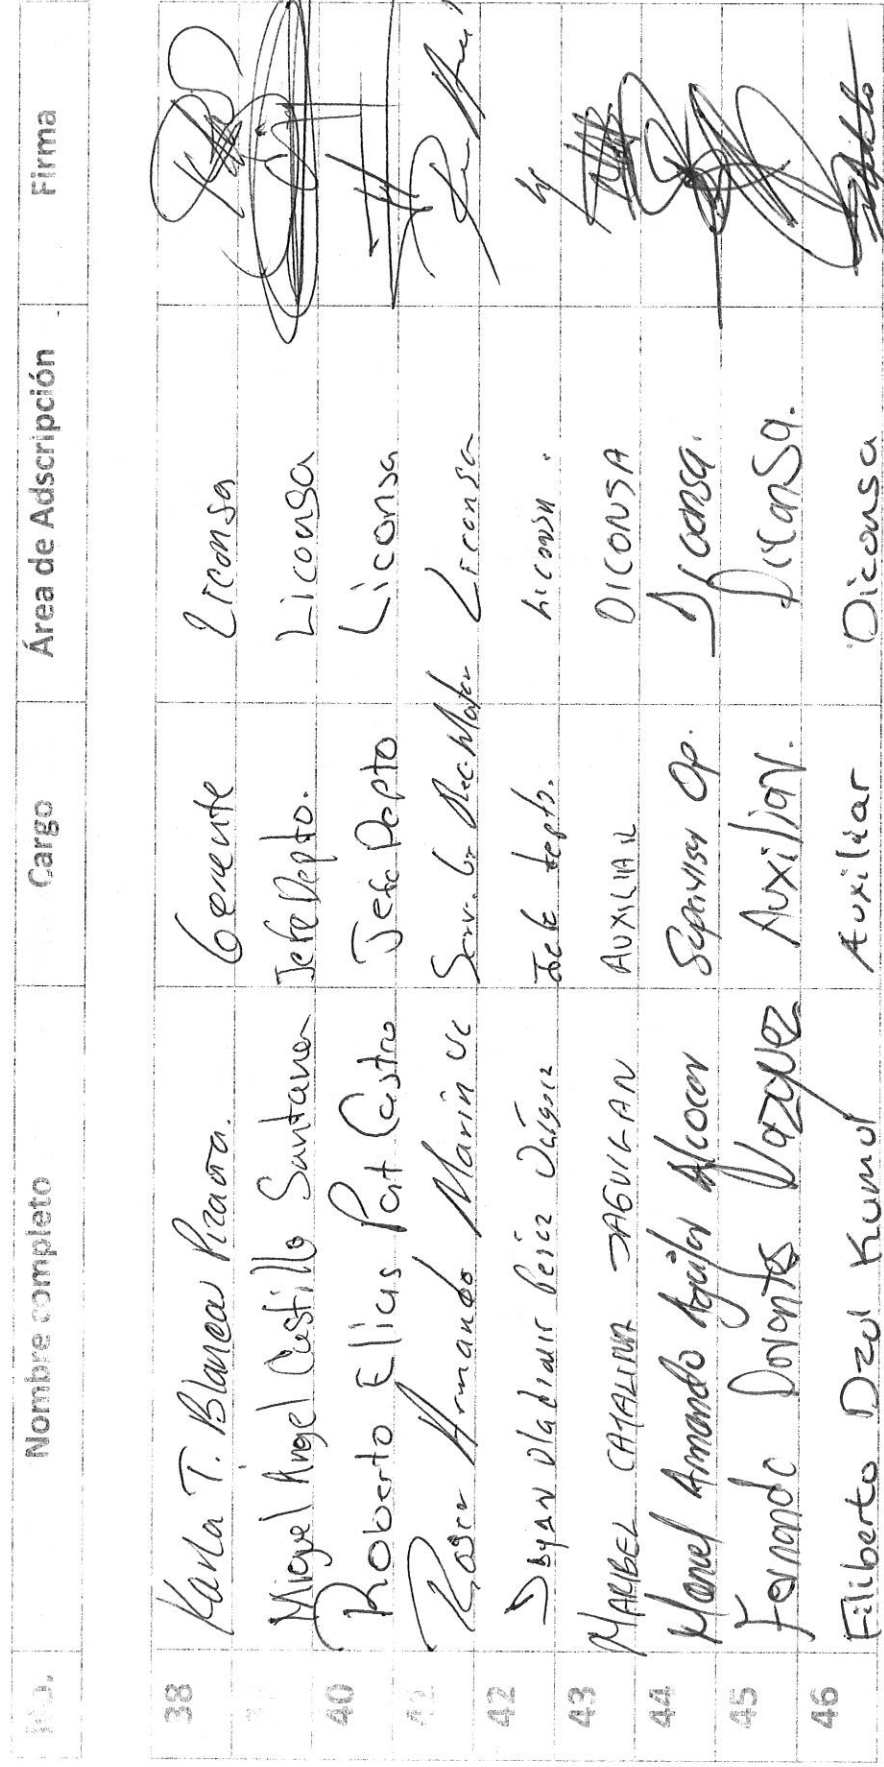 No. Nombre completo Cargo Área de Adscripción Firma
38 Karla T. Blanca Pizaña. Gerente Liconsa
Miguel Angel Castillo Santana Jefe Depto. Liconsa
40 Roberto Elias Pat Castro Jefe Depto Liconsa
41 Roger Armando Marin Uc Liconsa
42 Dayan Vladimir Perez Jefe depto. Liconsa.
43 MARIBEL CATALINA JAGUILAN AUXILIAR DICONSA
44 Manuel Armando Aguilar Alcocer Supervisor Op. Diconsa.
45 Fernando Dorantes Vazquez Auxiliar. Diconsa.
46 Filiberto Dzul Kumul Auxiliar Diconsa